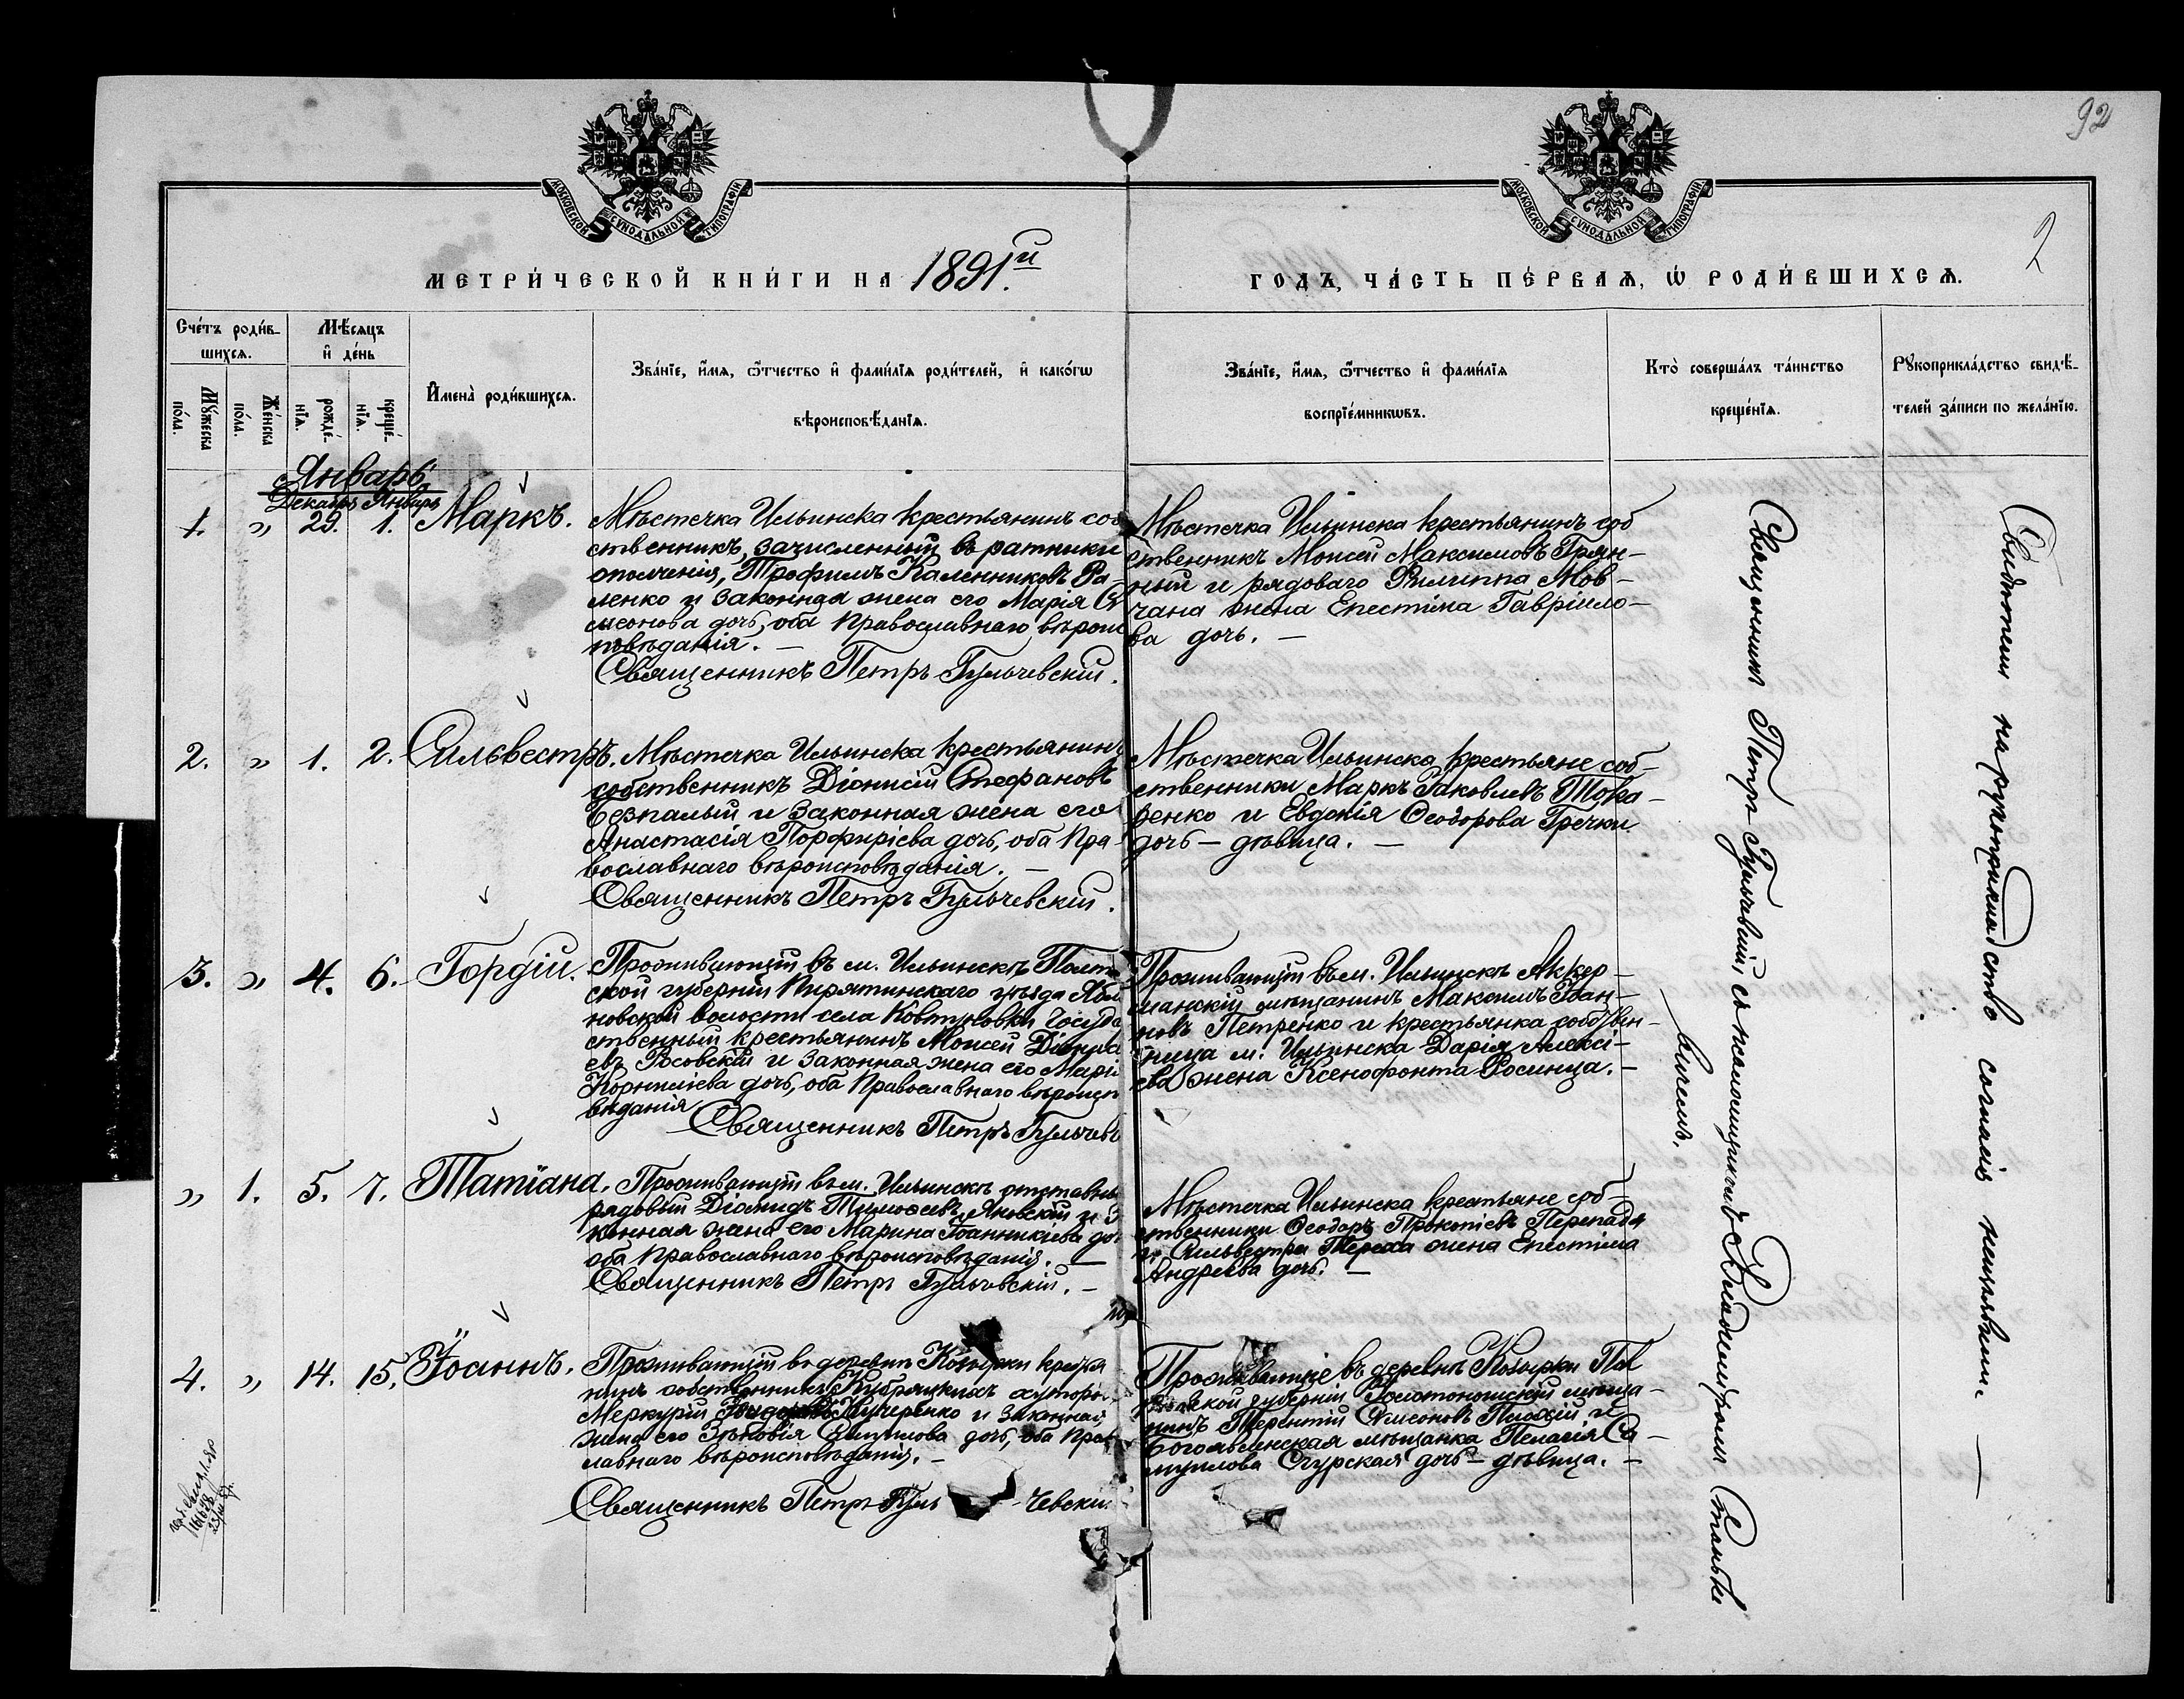 92
2
МОСКОВСКОЙ СѴНОДАЛЬНОЙ ТИПОГРАФІИ
МОСКОВСКОЙ СѴНОДАЛЬНОЙ ТИПОГРАФІИ
МЕТРИ́ЧЕСКОЙ КНИ́ГИ НА 1891.й
ГОДЪ, ЧА́СТЬ ПЕ́РВАѦ, Ѡ҆ РОДИ́ВШИХСѦ.
Сче́тъ роди́в-
шихсѧ.
Мꙋ́жеска по́ла.
Же́нска по́ла.
Мѣ́сѧцъ
и҆ де́нь
рожде́-нїѧ.
креще́-нїѧ.
И҆мена̀ роди́вшихсѧ.
Зва́нїе, и҆́мѧ, ѻ҆́тчество и҆ фами́лїѧ роди́телей, и҆ како́гѡ
вѣроисповѣ́данїѧ.
Зва́нїе, и҆́мѧ, ѻ҆́тчество и҆ фами́лїѧ
воспрїе́мникѡвъ.
Кто̀ соверша́лъ та́инство
креще́нїѧ.
Рꙋкоприкла́дство свидѣ́-
телей за́писи по жела́нїю.
Январь
Декабрь Январь
1. " 29. 1. Маркъ.
Мѣстечка Ильинска крестьянинъ соб
ственникъ, зачисленный въ ратники
ополченія, Трофимъ Каленниковъ Ра-
ленко и законная жена его Марія Си
меонова дочь, оба Православнаго вѣроис
повѣданія. —
Священникъ Петръ Гульчевскій.
Мѣстечка Ильинска крестьянинъ соб
ственникъ Моисей Максимовъ Гряз-
ный и рядоваго Филиппа Мов-
чана жена Епестима Гавріило-
ва дочь. —
2. " 1. 2. Сильвестръ.
Мѣстечка Ильинска крестьянинъ
собственникъ Діонисій Стефановъ
Безпалый и законная жена его
Анастасія Порфиріева дочь, оба Пра-
вославнаго вѣроисповѣданія. —
Священникъ Петръ Гульчевскій.
Мѣстечка Ильинска крестьяне соб-
ственники Маркъ Іаковлевъ Тока-
ренко и Евдокія Ѳеодорова Гречки
дочь — дѣвица. —
3. " 4. 6. Гордій.
Проживающій въ м. Ильинскѣ Полта
ской губерніи Пирятинскаго уѣзда Ябл
новской волости села Ковтуновки Госуда
ственный крестьянинъ Моисей
евъ Росовскій и законная жена его Марія
Корниліева дочь, оба Православнаго вѣроиспо
вѣданія
Священникъ Петръ Гульчевс
Проживающій въ м. Ильинскѣ Аккер-
манскій мѣщанинъ Максимъ Іоан-
новъ Петренко и крестьянка собствен-
ница м. Ильинска Дарія Алексі-
ева жена Ксенофонта Росинца. —
" 1. 5. 7. Татіана.
Проживающій въ м. Ильинскѣ отставный
рядовый Діомидъ Тимоѳеевъ Яновскій и за
конная жена его Марина Іоанникіева доч
оба Православнаго вѣроисповѣданія. —
Священникъ Петръ Гульчевскій. —
Мѣстечка Ильинска крестьяне соб-
ственники Ѳеодоръ Прокопіевъ
и Сильвестра Тереха жена Епестима
Андреева дочь. —
4. " 14. 15. Іоаннъ.
Проживающій въ деревнѣ Козырки крестья
нинъ собственникъ хуторо
Меркурій Кучеренко и законная
жена его Зѣновія дочь, оба Прав
славнаго вѣроисповѣданія. —
Священникъ Петръ Гуль-чевскій
Проживающіе въ деревнѣ Козырки Пол
тавской губерніи Золотоношскій мѣща-
нинъ Терентій Симеоновъ и
Богоявленская мѣщанка Пелагія Са-
муилова Сгурская дочь — дѣвица. —
Священникъ Петръ Гульчевскій, съ псаломщикомъ Владиміромъ
вичемъ.
Свидѣтели на рукоприкладство согласія неизъявили. —